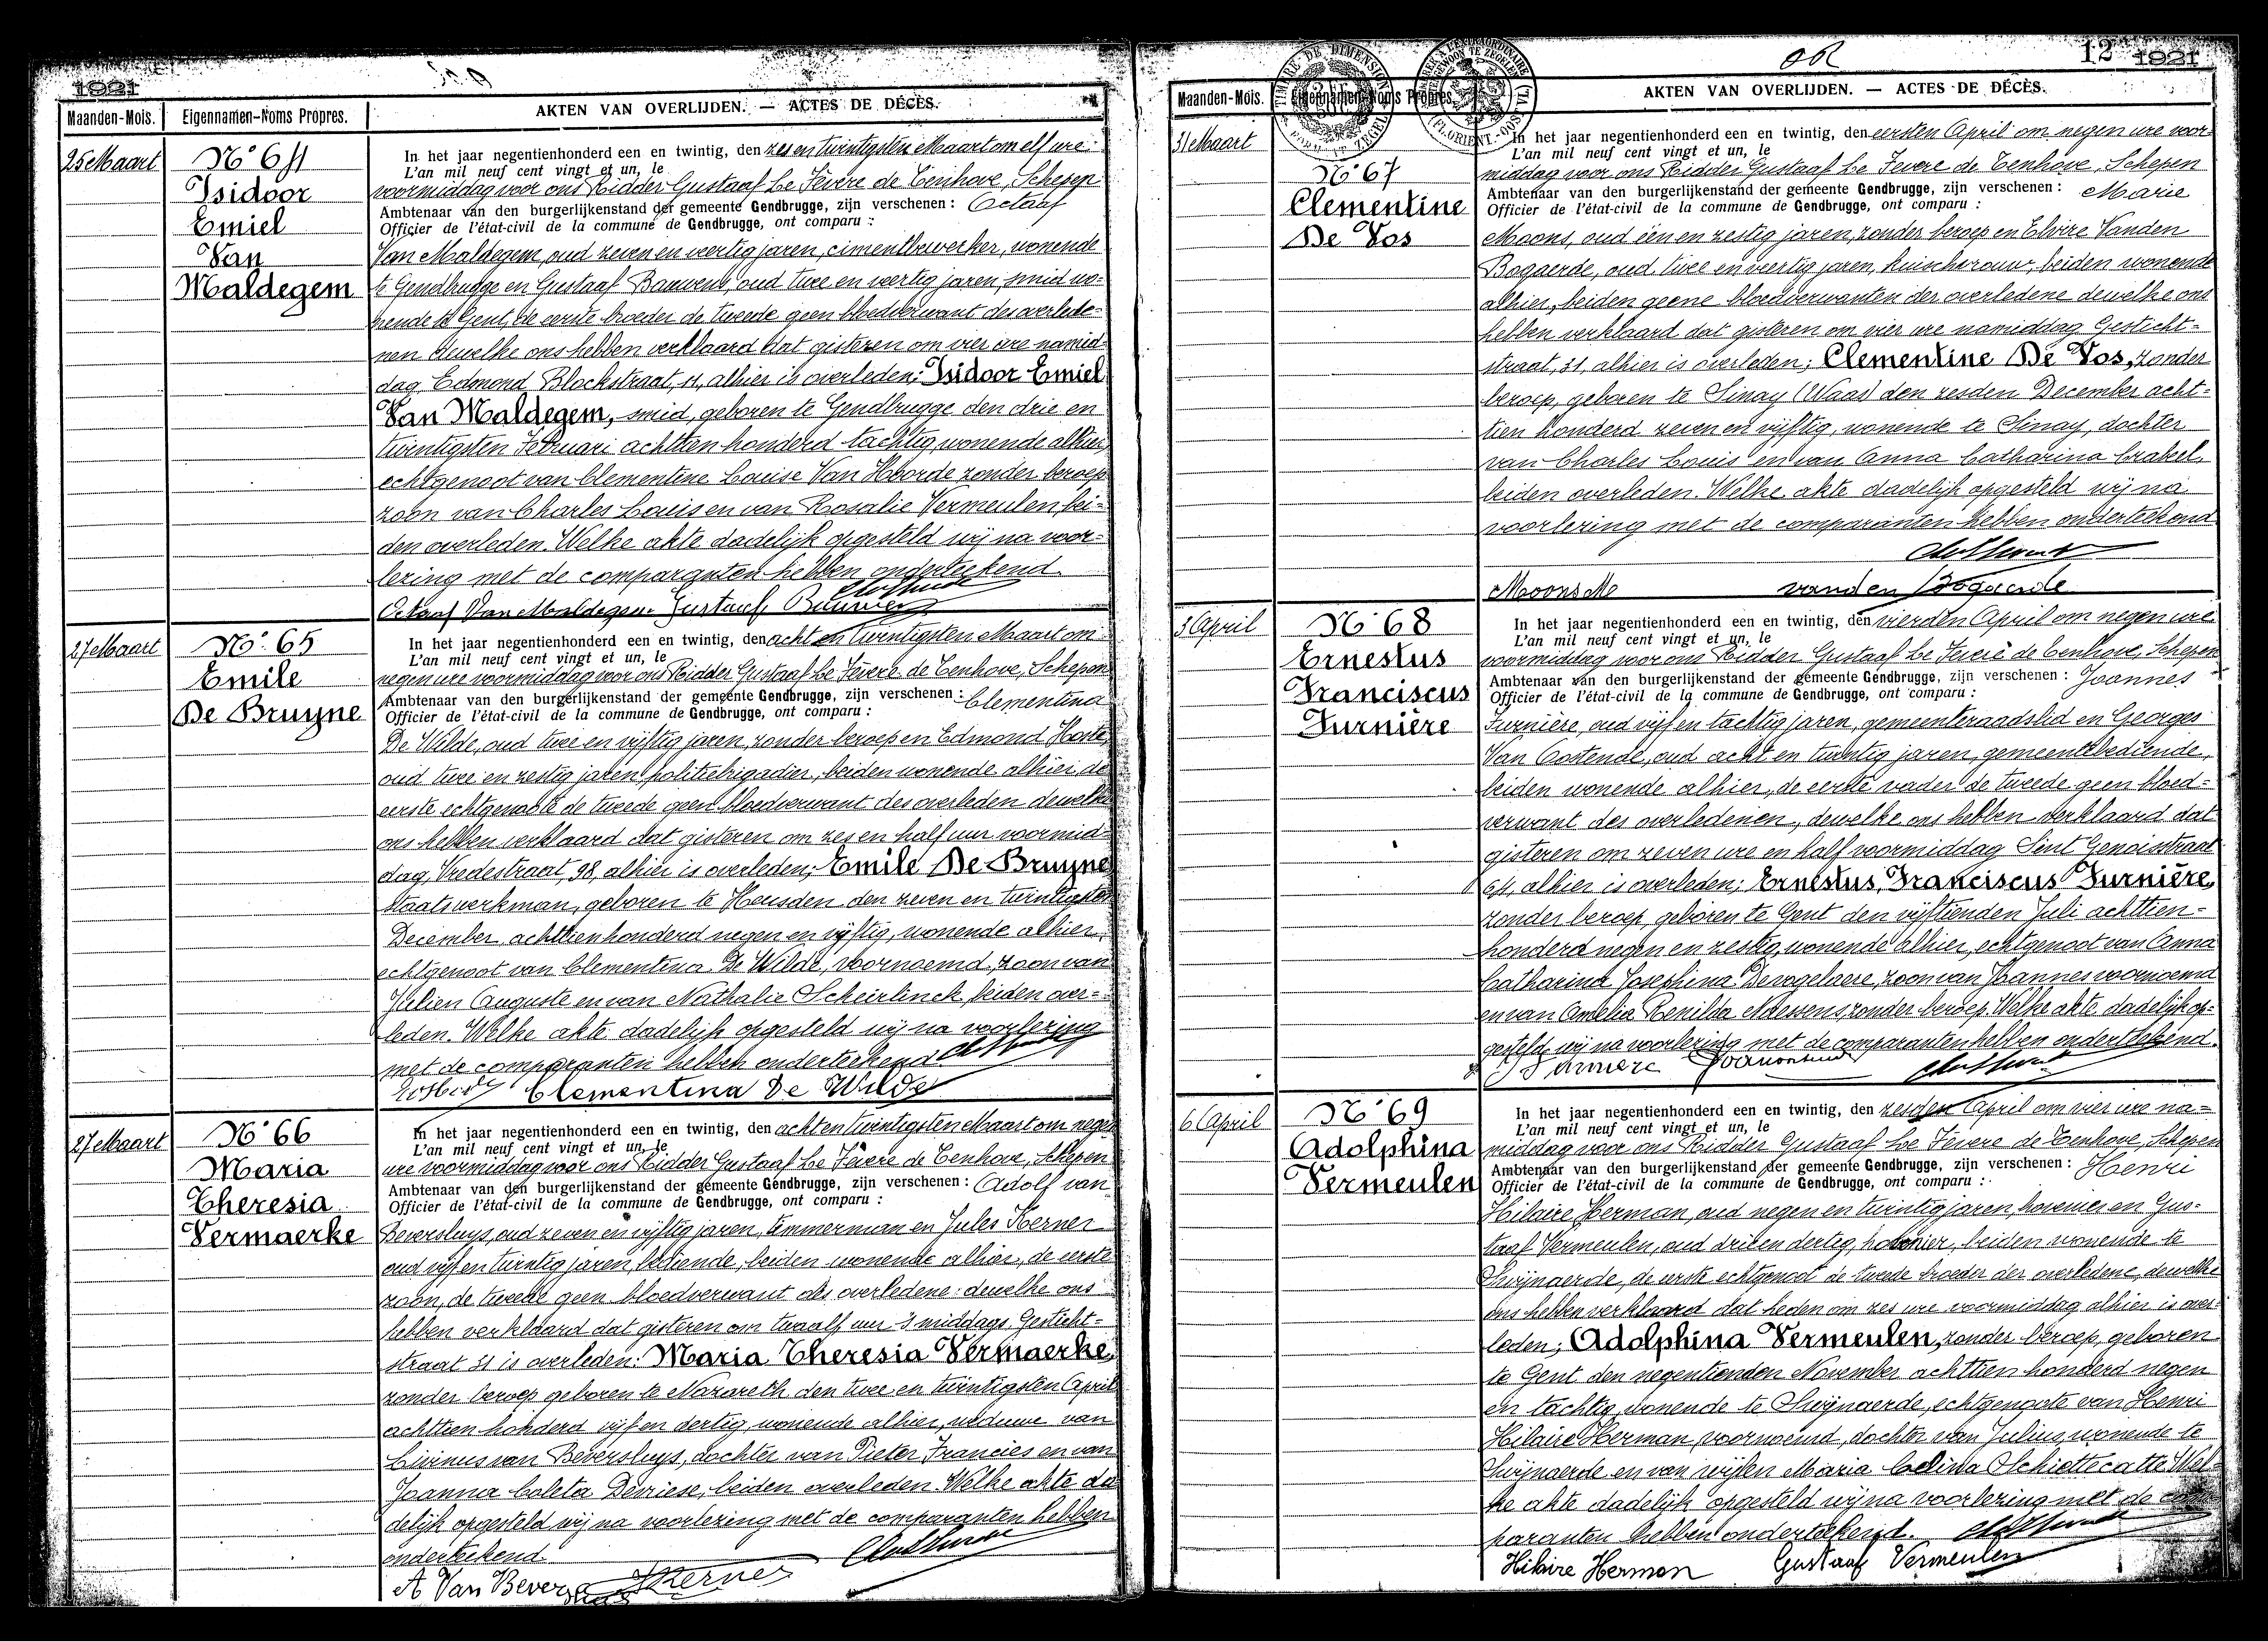 1921
Maanden-Mois. Eigennamen-Noms Propres. AKTEN VAN OVERLIJDEN. — ACTES DE DÉCÈS.
25 Maart
N° 64
Isidoor
Emiel
Van
Maldegem
In het jaar negentienhonderd een en twintig, den zes en twintigsten Maart om elf ure
L'an mil neuf cent vingt et un, le
voormiddag voor ons Ridder Gustaaf Le Fevere de Tenhove, Schepen
Ambtenaar van den burgerlijkenstand der gemeente Gendbrugge, zijn verschenen : Octaaf
Officier de l'état-civil de la commune de Gendbrugge, ont comparu :
Van Maldegem, oud zeven en veertig jaren, cimentbewerker, wonende
te Gendbrugge en Gustaaf Bauwens, oud twee en veertig jaren, smid wo=
nende te Gent, de eerste broeder de tweede geen bloedverwant des overlede=
nen dewelke ons hebben verklaard dat gisteren om vier ure namid=
dag, Edmond Blockstraat, 11, alhier is overleden; Isidoor Emiel
Van Maldegem, smid, geboren te Gendbrugge den drie en
twintigsten Februari achttien honderd tachtig, wonende alhier,
echtgenoot van Clementine Louise Van Hoorde zonder beroep
zoon van Charles Louis en van Rosalie Vermeulen, bei=
den overleden. Welke akte dadelijk opgesteld wij na voor=
lezing met de comparanten hebben onderteekend.
Octaaf Van Maldegem Gustaaf Bauwens
27 Maart
N° 65
Emile
De Bruyne
In het jaar negentienhonderd een en twintig, den acht en twintigsten Maart om
L'an mil neuf cent vingt et un, le
negen ure voormiddag voor ons Ridder Gustaaf Le Fevere de Tenhove, Schepen
Ambtenaar van den burgerlijkenstand der gemeente Gendbrugge, zijn verschenen : Clementina
Officier de l'état-civil de la commune de Gendbrugge, ont comparu :
De Wilde, oud twee en vijftig jaren, zonder beroep en Edmond Hoste,
oud twee en zestig jaren, politiebrigadier, beiden wonende alhier, de
eerste echtgenoote de tweede geen bloedverwant des overleden dewelke
ons hebben verklaard dat gisteren om zes en half uur voormid=
dag, Vredestraat, 98, alhier is overleden; Emile De Bruyne
staatswerkman, geboren te Heusden den zeven en twintigsten
December, achttienhonderd negen en vijftig, wonende alhier,
echtgenoot van Clementina De Wilde, voornoemd, zoon van
Julien Auguste en van Nathalie Scheirlinck, beiden over=
leden. Welke akte dadelijk opgesteld wij na voorlezing
met de comparanten hebben onderteekend
Clementina De Wilde
27 Maart
N° 66
Maria
Theresia
Vermaerke
In het jaar negentienhonderd een en twintig, den acht en twintigsten Maart om negen
L'an mil neuf cent vingt et un, le
ure voormiddag voor ons Ridder Gustaaf Le Fevere de Tenhove, Schepen
Ambtenaar van den burgerlijkenstand der gemeente Gendbrugge, zijn verschenen : Adolf van
Officier de l'état-civil de la commune de Gendbrugge, ont comparu :
Beversluys, oud zeven en vijftig jaren, timmerman en Jules Kerner
oud vijf en twintig jaren, bediende, beiden wonende alhier, de eerste
zoon, de tweede geen bloedverwant der overledene: dewelke ons
hebben verklaard dat gisteren om twaalf uur 's middags Gesticht=
straat 31 is overleden: Maria Theresia Vermaerke,
zonder beroep geboren te Nazareth den twee en twintigsten April
achttien honderd vijf en dertig, wonende alhier, weduwe van
Livinus van Beversluys, dochter van Pieter Francies en van
Joanna Coleta Devriese, beiden overleden. Welke akte da
delijk opgesteld wij na voorlezing met de comparanten hebben
onderteekend
A Van Beversluys JKerner
OR
12 1921
TIMBRE DE DIMENSION
Maanden-Mois. Eigennamen-Noms Propres. AKTEN VAN OVERLIJDEN. — ACTES DE DÉCÈS.
31 Maart
N° 67
Clementine
De Vos
In het jaar negentienhonderd een en twintig, den eersten April om negen ure voor
L'an mil neuf cent vingt et un, le
middag voor ons Ridder Gustaaf Le Fevere de Tenhove, Schepen
Ambtenaar van den burgerlijkenstand der gemeente Gendbrugge, zijn verschenen : Marie
Officier de l'état-civil de la commune de Gendbrugge, ont comparu :
Moons, oud één en zestig jaren, zonder beroep en Elvire Vanden
Bogaerde, oud twee en veertig jaren, kuischvrouw, beiden wonende
alhier, beiden geene bloedverwanten der overledene dewelke ons
hebben verklaard dat gisteren om vier ure namiddag Gesticht=
straat, 31, alhier is overleden; Clementine De Vos, zonder
beroep, geboren te Sinay (Waas) den zesden December acht=
tien honderd zeven en vijftig, wonende te Sinay, dochter
van Charles Louis en van Anna Catharina Crakeel,
beiden overleden. Welke akte dadelijk opgesteld wij na
voorlezing met de comparanten hebben onderteekend
Moons M vanden Bogaerde
3 April
N° 68
Ernestus
Franciscus
Furnière
In het jaar negentienhonderd een en twintig, den vierden April om negen ure
L'an mil neuf cent vingt et un, le
voormiddag voor ons Ridder Gustaaf Le Fevere de Tenhove, Schepen
Ambtenaar van den burgerlijkenstand der gemeente Gendbrugge, zijn verschenen : Joannes
Officier de l'état-civil de la commune de Gendbrugge, ont comparu :
Furnière, oud vijf en tachtig jaren, gemeenteraadslid en Georges
Van Oostende, oud acht en twintig jaren, gemeentebediende,
beiden wonende alhier, de eerste vader de tweede geen bloed=
verwant des overledenen, dewelke ons hebben verklaard dat
gisteren om zeven ure en half voormiddag Sint Genoisstraat
64, alhier is overleden; Ernestus, Franciscus Furnière,
zonder beroep, geboren te Gent den vijftienden Juli achttien=
honderd negen en zestig, wonende alhier, echtgenoot van Anna
Catharina Josephina Devogelaere, zoon van Joannes voornoemd
en van Amelia Renilda Maessens, zonder beroep. Welke akte dadelijk op=
gesteld wij na voorlezing met de comparanten hebben onderteekend.
6 April
N° 69
Adolphina
Vermeulen
In het jaar negentienhonderd een en twintig, den zesden April om vier ure na=
L'an mil neuf cent vingt et un, le
middag voor ons Ridder Gustaaf Le Fevere de Tenhove, Schepen
Ambtenaar van den burgerlijkenstand der gemeente Gendbrugge, zijn verschenen : Henri
Officier de l'état-civil de la commune de Gendbrugge, ont comparu :
Hilaire Herman, oud negen en twintig jaren, hovenier en Gus=
taaf Vermeulen, oud drie en dertig, hovenier, beiden wonende te
Swijnaerde, de eerste echtgenoot de tweede broeder der overledene, dewelke
ons hebben verklaard dat heden om zes ure voormiddag alhier is over=
leden; Adolphina Vermeulen, zonder beroep, geboren
te Gent den negentienden November achttien honderd negen
en tachtig, wonende te Swijnaerde, echtgenoote van Henri
Hilaire Herman, voornoemd, dochter van Julius, wonende te
Swijnaerde en van wijlen Maria Celina Schiettecatte. Wel=
ke akte dadelijk opgesteld wij na voorlezing met de com
paranten hebben onderteekend.
Hilaire Herman Gustaaf Vermeulen